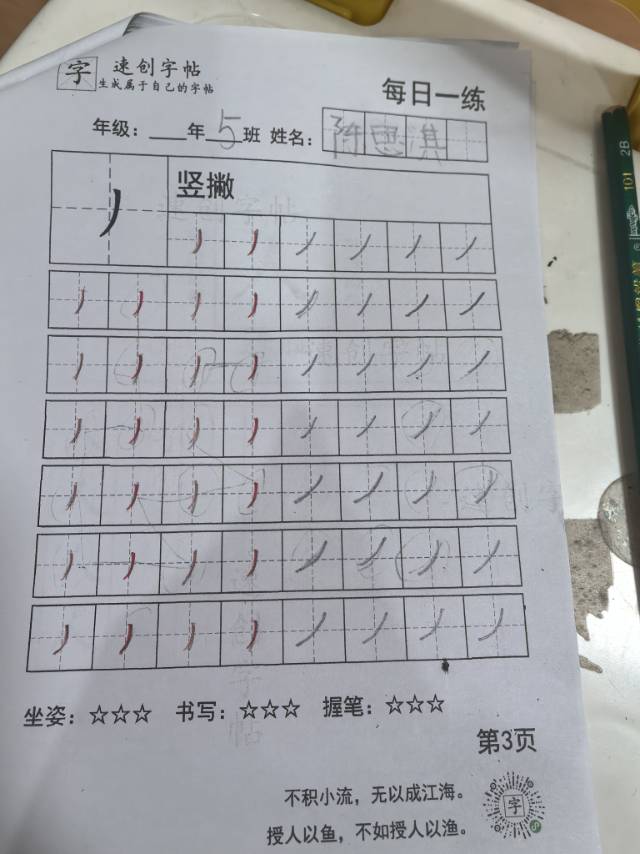 字 速创字帖
生成属于自己的字帖
每日一练
年级：____年 5 班 姓名：陈思淇
竖撇
坐姿：☆☆☆ 书写：☆☆☆ 握笔：☆☆☆
第3页
不积小流，无以成江海。
授人以鱼，不如授人以渔。
字
101 2B